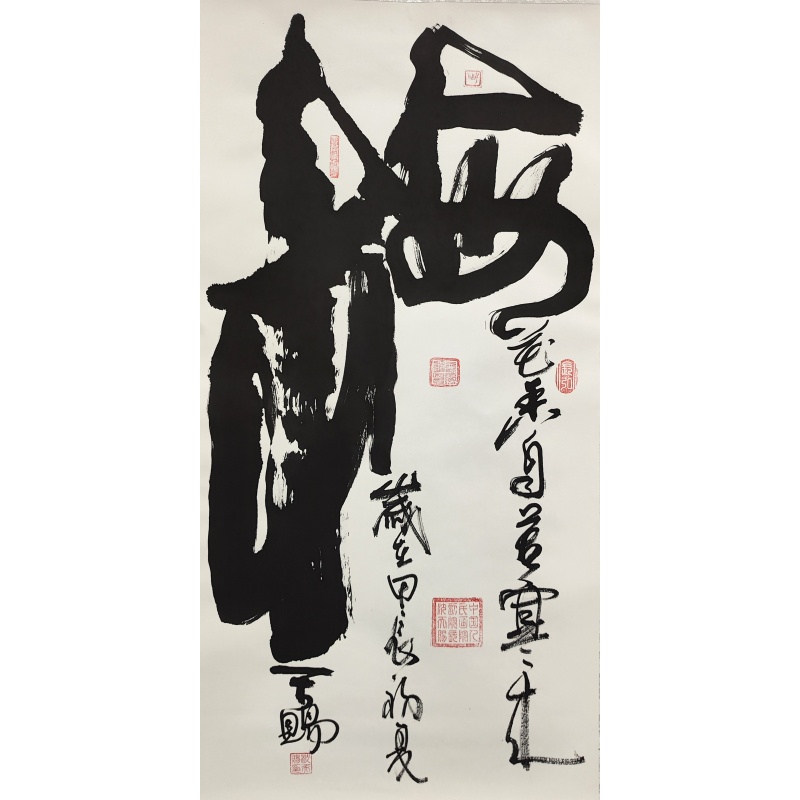 梅
花香自苦寒来
歲在甲辰初夏
天賜